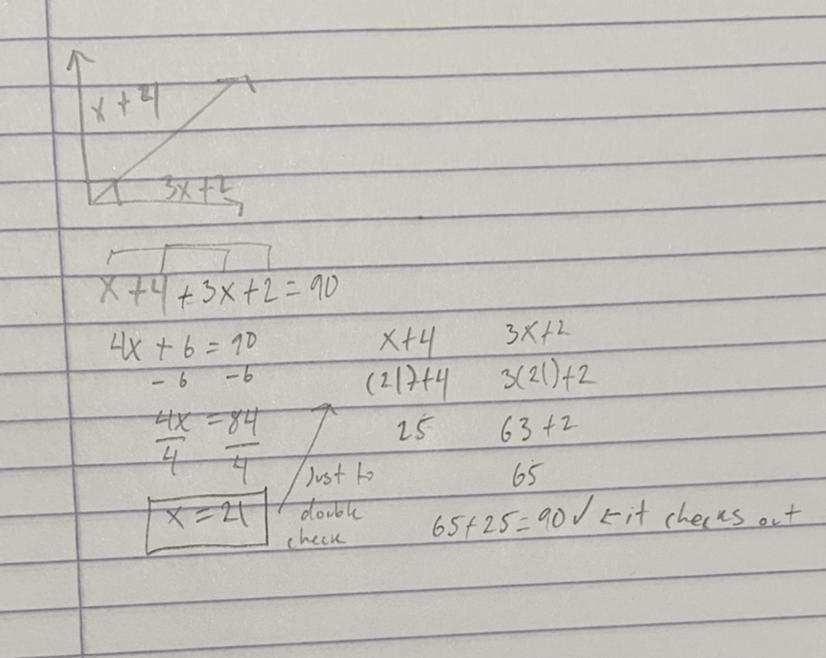 x + 4
3x + 2
x + 4 + 3x + 2 = 90
4x + 6 = 90
- 6 - 6
4x = 84
4 4
x = 21
Just to
double
check
x + 4
(21) + 4
25
3x + 2
3(21) + 2
63 + 2
65
65 + 25 = 90 ✓ ← it checks out